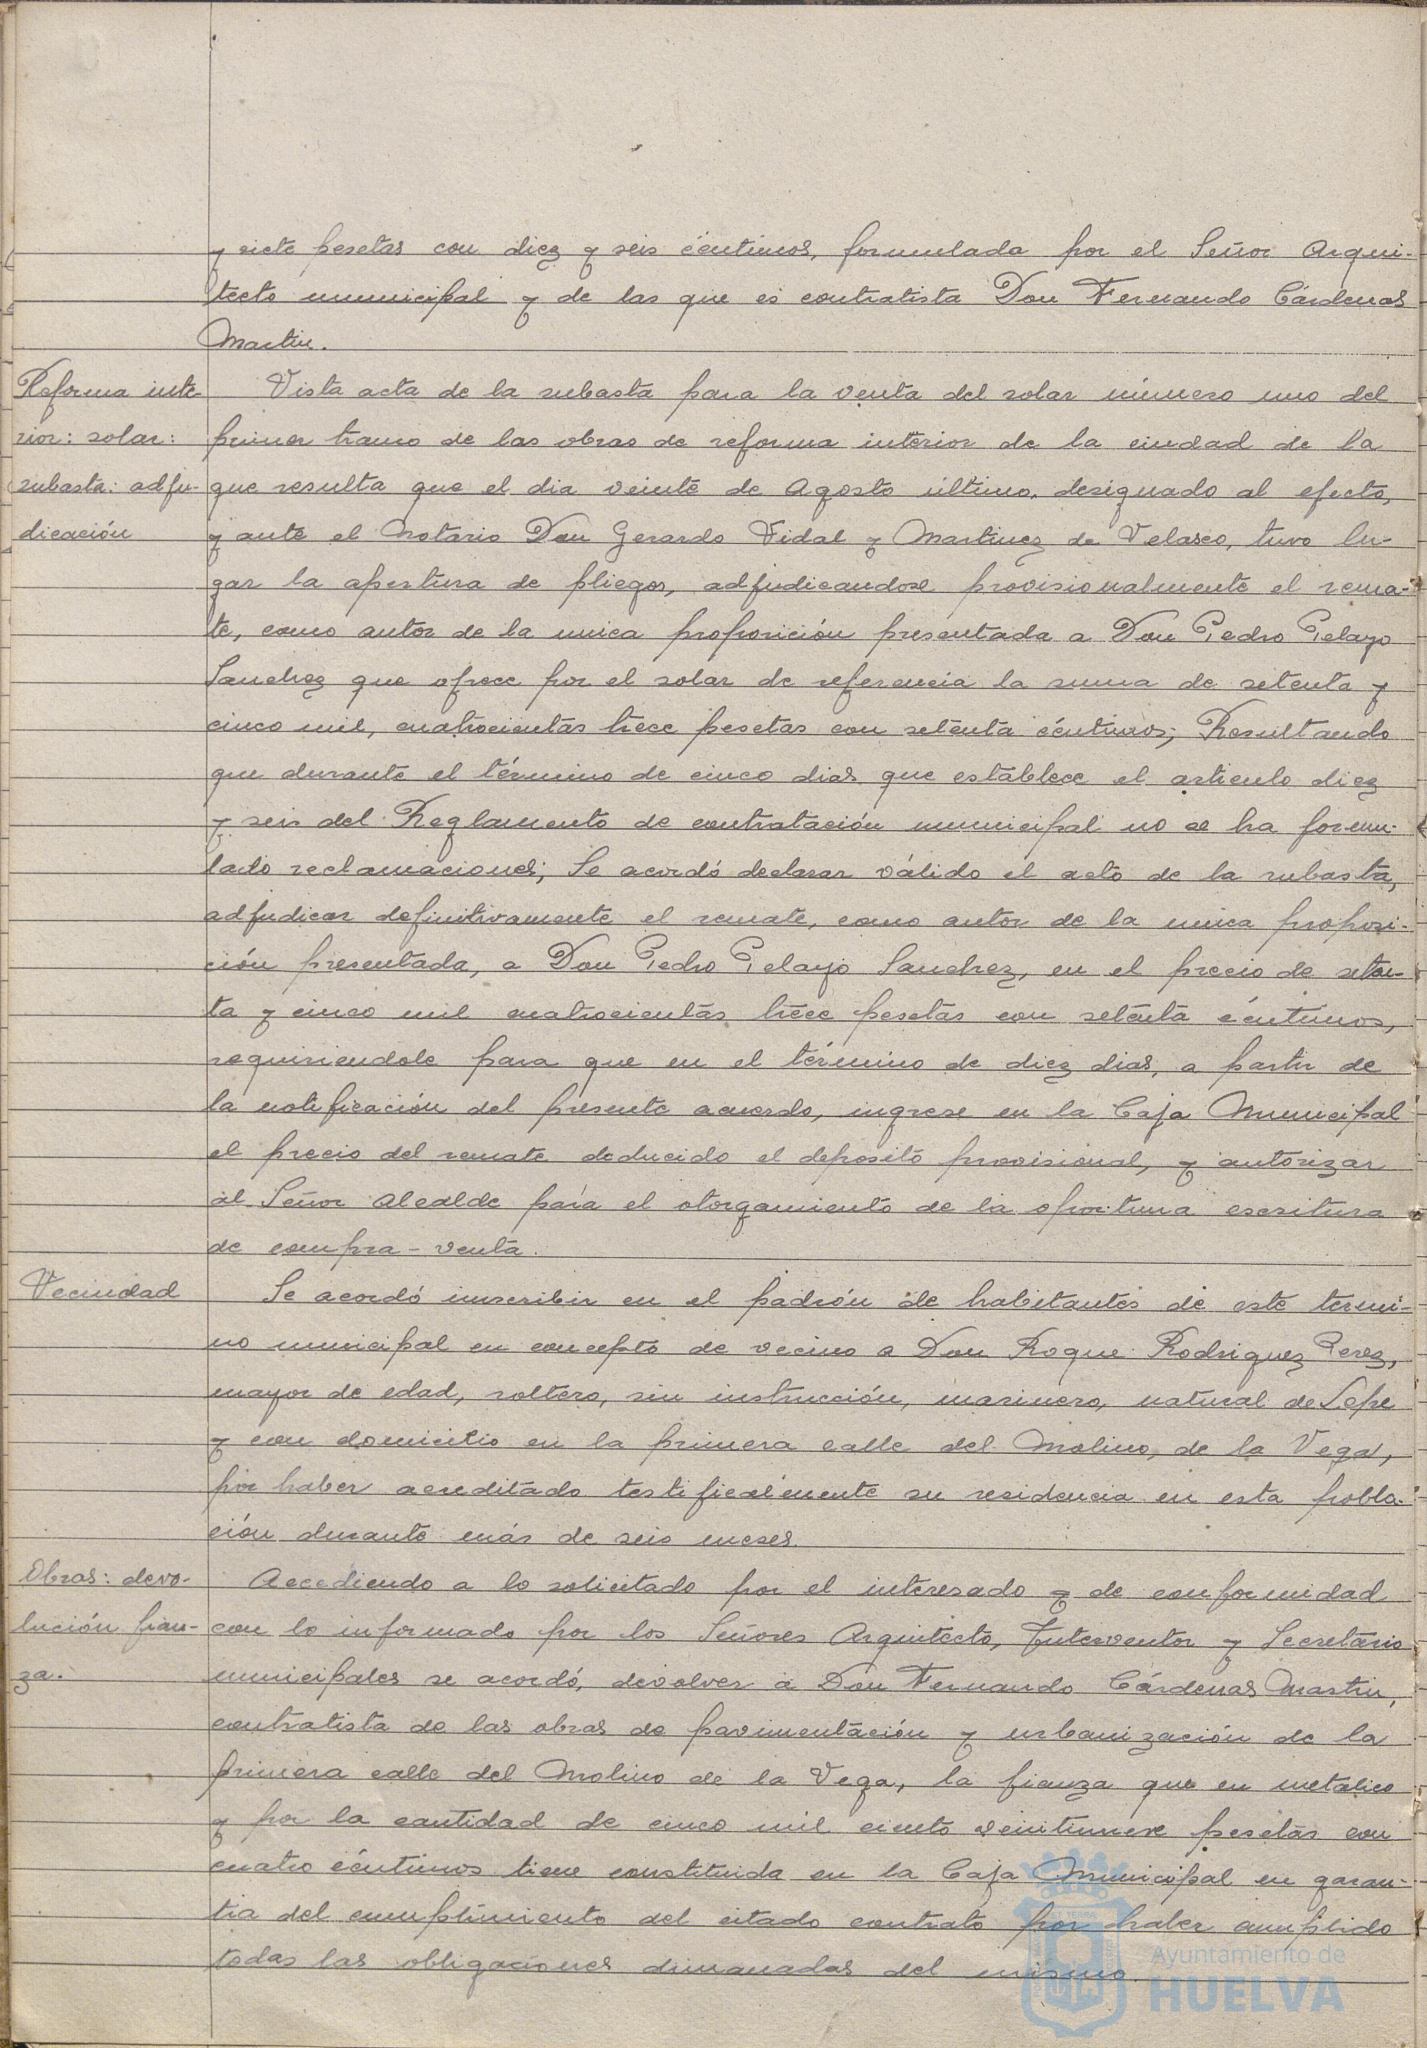 y siete pesetas con diez y seis céntimos, formulada por el Señor Arqui-
tecto municipal y de las que es contratista Don Fernando Cárdenas
Martin.
Reforma inte-
rior: solar:
subasta: adju-
dicación
Vista acta de la subasta para la venta del solar número uno del
primer tramo de las obras de reforma interior de la ciudad de la
que resulta que el dia veinte de Agosto último, designado al efecto,
y ante el Notario Don Gerardo Vidal y Martinez de Velasco, tuvo lu-
gar la apertura de pliegos, adjudicandose provisionalmente el rema-
te, como autor de la unica proposición presentada a Don Pedro Pelayo
Sanchez que ofrece por el solar de referencia la suma de setenta y
cinco mil, cuatrocientas trece pesetas con setenta céntimos; Resultando
que durante el término de cinco dias que establece el articulo diez
y seis del Reglamento de contratación municipal no se ha formu-
lado reclamaciones; Se acordó declarar válido el acto de la subasta,
adjudicar definitivamente el remate, como autor de la unica proposi-
ción presentada, a Don Pedro Pelayo Sanchez, en el precio de seten-
ta y cinco mil cuatrocientas trece pesetas con setenta céntimos,
requiriendole para que en el término de diez dias, a partir de
la notificación del presente acuerdo, ingrese en la Caja Municipal
el precio del remate deducido el deposito provisional, y autorizar
al Señor Alcalde para el otorgamiento de la oportuna escritura
de compra-venta.
Vecindad
Se acordó inscribir en el padrón de habitantes de este termi-
no municipal en concepto de vecino a Don Roque Rodriguez Perez,
mayor de edad, soltero, sin instrucción, marinero, natural de Lepe
y con domicilio en la primera calle del Molino, de la Vega,
por haber acreditado testificalmente su residencia en esta pobla-
ción durante más de seis meses.
Obras: devo-
lución fian-
za.
Accediendo a lo solicitado por el interesado y de conformidad
con lo informado por los Señores Arquitecto, Interventor y Secretario
municipales se acordó, devolver a Don Fernando Cárdenas Martin,
contratista de las obras de pavimentación y urbanización de la
primera calle del Molino de la Vega, la fianza que en metalico
y por la cantidad de cinco mil ciento veintinueve pesetas con
cuatro céntimos tiene constituida en la Caja Municipal en garan-
tia del cumplimiento del citado contrato por haber cumplido
todas las obligaciones dimanadas del mismo.
Ayuntamiento de
HUELVA